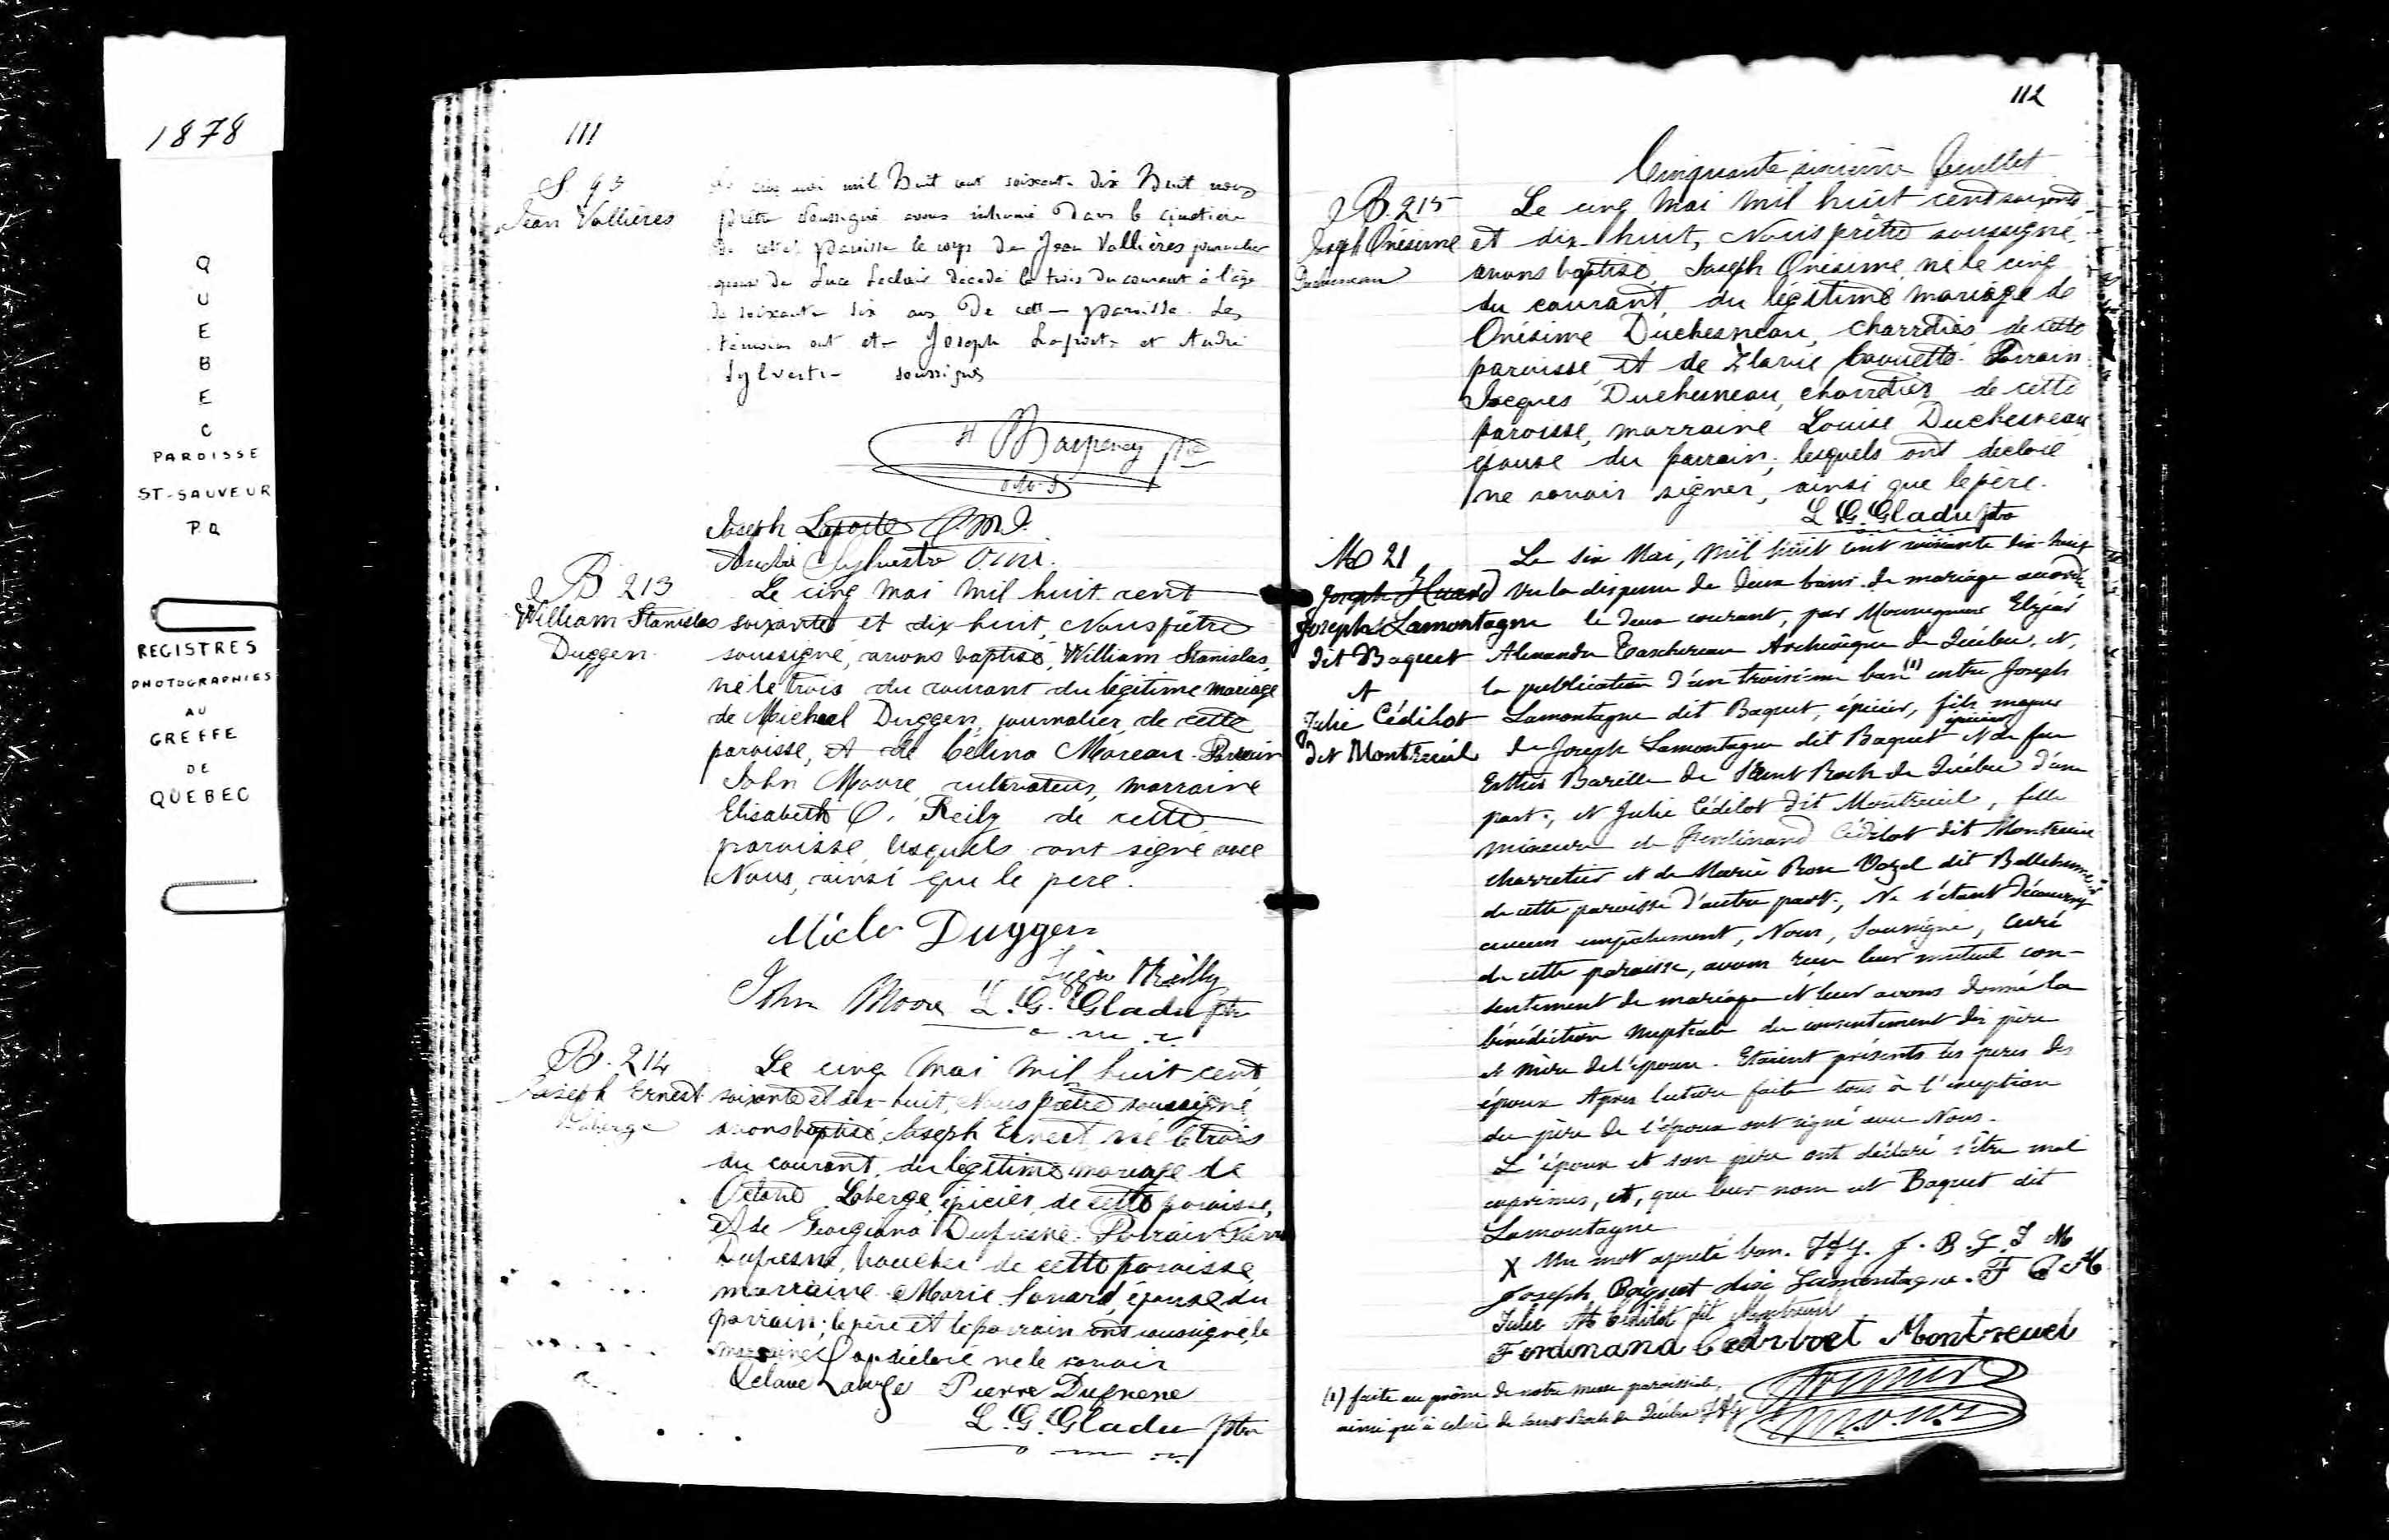 1878
Q
U
E
B
E
C
PAROISSE
ST-SAUVEUR
P.Q
REGISTRES
PHOTOGRAPHIES
AU
GREFFE
DE
QUEBEC
111
S. 93
Jean Vallières
cinq mai mil huit cent soixante dix huit nous
prêtre soussigné avons inhumé dans le cimetière
de cette paroisse le corps de Jean Vallières journalier
époux de Luce Leclair décédé le trois du courant à l'âge
de soixante six ans De cette paroisse. Les
témoins ont été Joseph Laporte et André
Sylvestre soussignés
ptre
o.m.i
Joseph Laporte O.M.I.
André Sylvestre O.m.i.
B 213
William Stanislas
Duggen
Le cinq mai mil huit cent
soixante et dix-huit, Nous prêtre
soussigné, avons baptisé, William Stanislas,
né le trois du courant du légitime mariage
de Micheal Duggen, journalier, de cette
paroisse, et de Célina Moreau. Parrain
John Moore, cultivateur, marraine
Elisabeth O. Reily de cette
paroisse, lesquels ont signé avec
Nous, ainsi que le pere.
Duggen
Reilly
John Moore L. G. Gladu ptre
o.m.i
B. 214
Joseph Ernest
Laberge
Le cinq Mai mil huit cent
soixante et dix-huit, Nous prêtre soussigné
avons baptisé, Joseph Ernest né le trois
du courant, du légitime mariage de
Octave Laberge, épicier, de cette paroisse,
et de Georgiana Dufresne. Parrain Pierre
Dufresne, boucher de cette paroisse,
marraine Marie épouse du
parrain; le père et le parrain ont soussigné, la
marraine a déclaré ne le savoir
Octave Laberge Pierre Dufresne
L. G. Gladu ptre
o.m.i
112
Cinquante sixième feuillet
B. 215
Joseph Onésime
Duchesneau
Le cinq Mai mil huit cent soixante
et dix-huit, Nous prêtre soussigné,
avons baptisé, Joseph Onésime, né le cinq
du courant, du légitime mariage de
Onésime Duchesneau, charretier de cette
paroisse, et de Flavie Parrain
Jacques Duchesneau, charretier de cette
paroisse, marraine Louise Duchesneau
épouse du parrain; lesquels ont déclaré
ne savoir signer, ainsi que le père.
L. G. Gladu ptre
M 21
Joseph Huard
Joseph Lamontagne
dit Baquet
et
Julie Cédilot
dit Montreuil
Le six Mai, mil huit cent soixante dix-huit
Vu la dispense de deux bans de mariage accordée
le deux courant, par Monseigneur Elzéar
Alexandre Taschereau Archevêque de Québec, et,
la publication d'un troisième ban (1) entre Joseph
Lamontagne dit Baquet, épicier, fils majeur
de Joseph Lamontagne dit Baquet épicier et de feu
Esther Barille de Saint Roch de Québec d'une
part, et Julie Cédilot dit Montreuil, fille
mineure de Ferdinand Cédilot dit Montreuil
charretier et de Marie Rose dit
de cette paroisse d'autre part; Ne s'étant découvert
aucun empêchement, Nous, Soussigné, Curé
de cette paroisse, avons reçu leur mutuel con-
sentement de mariage et leur avons donné la
bénédiction nuptiale du consentement des père
et mère de l'épouse. Etaient présents les peres des
époux Après lecture faite tous à l'exception
du père de l'époux ont signé avec Nous.
L'époux et son père ont déclaré s'être mal
exprimés, et, que leur nom est Baquet dit
Lamontagne
X Un mot ajouté bon. J. B. L. J M
Joseph Baquet dit Lamontagne. F C M
Julie Cédilot dit Montreuil
Ferdinand Montreuel
(1) faite au prône de notre messe paroissiale,
ainsi qu'à celui de Saint Roch de Québec